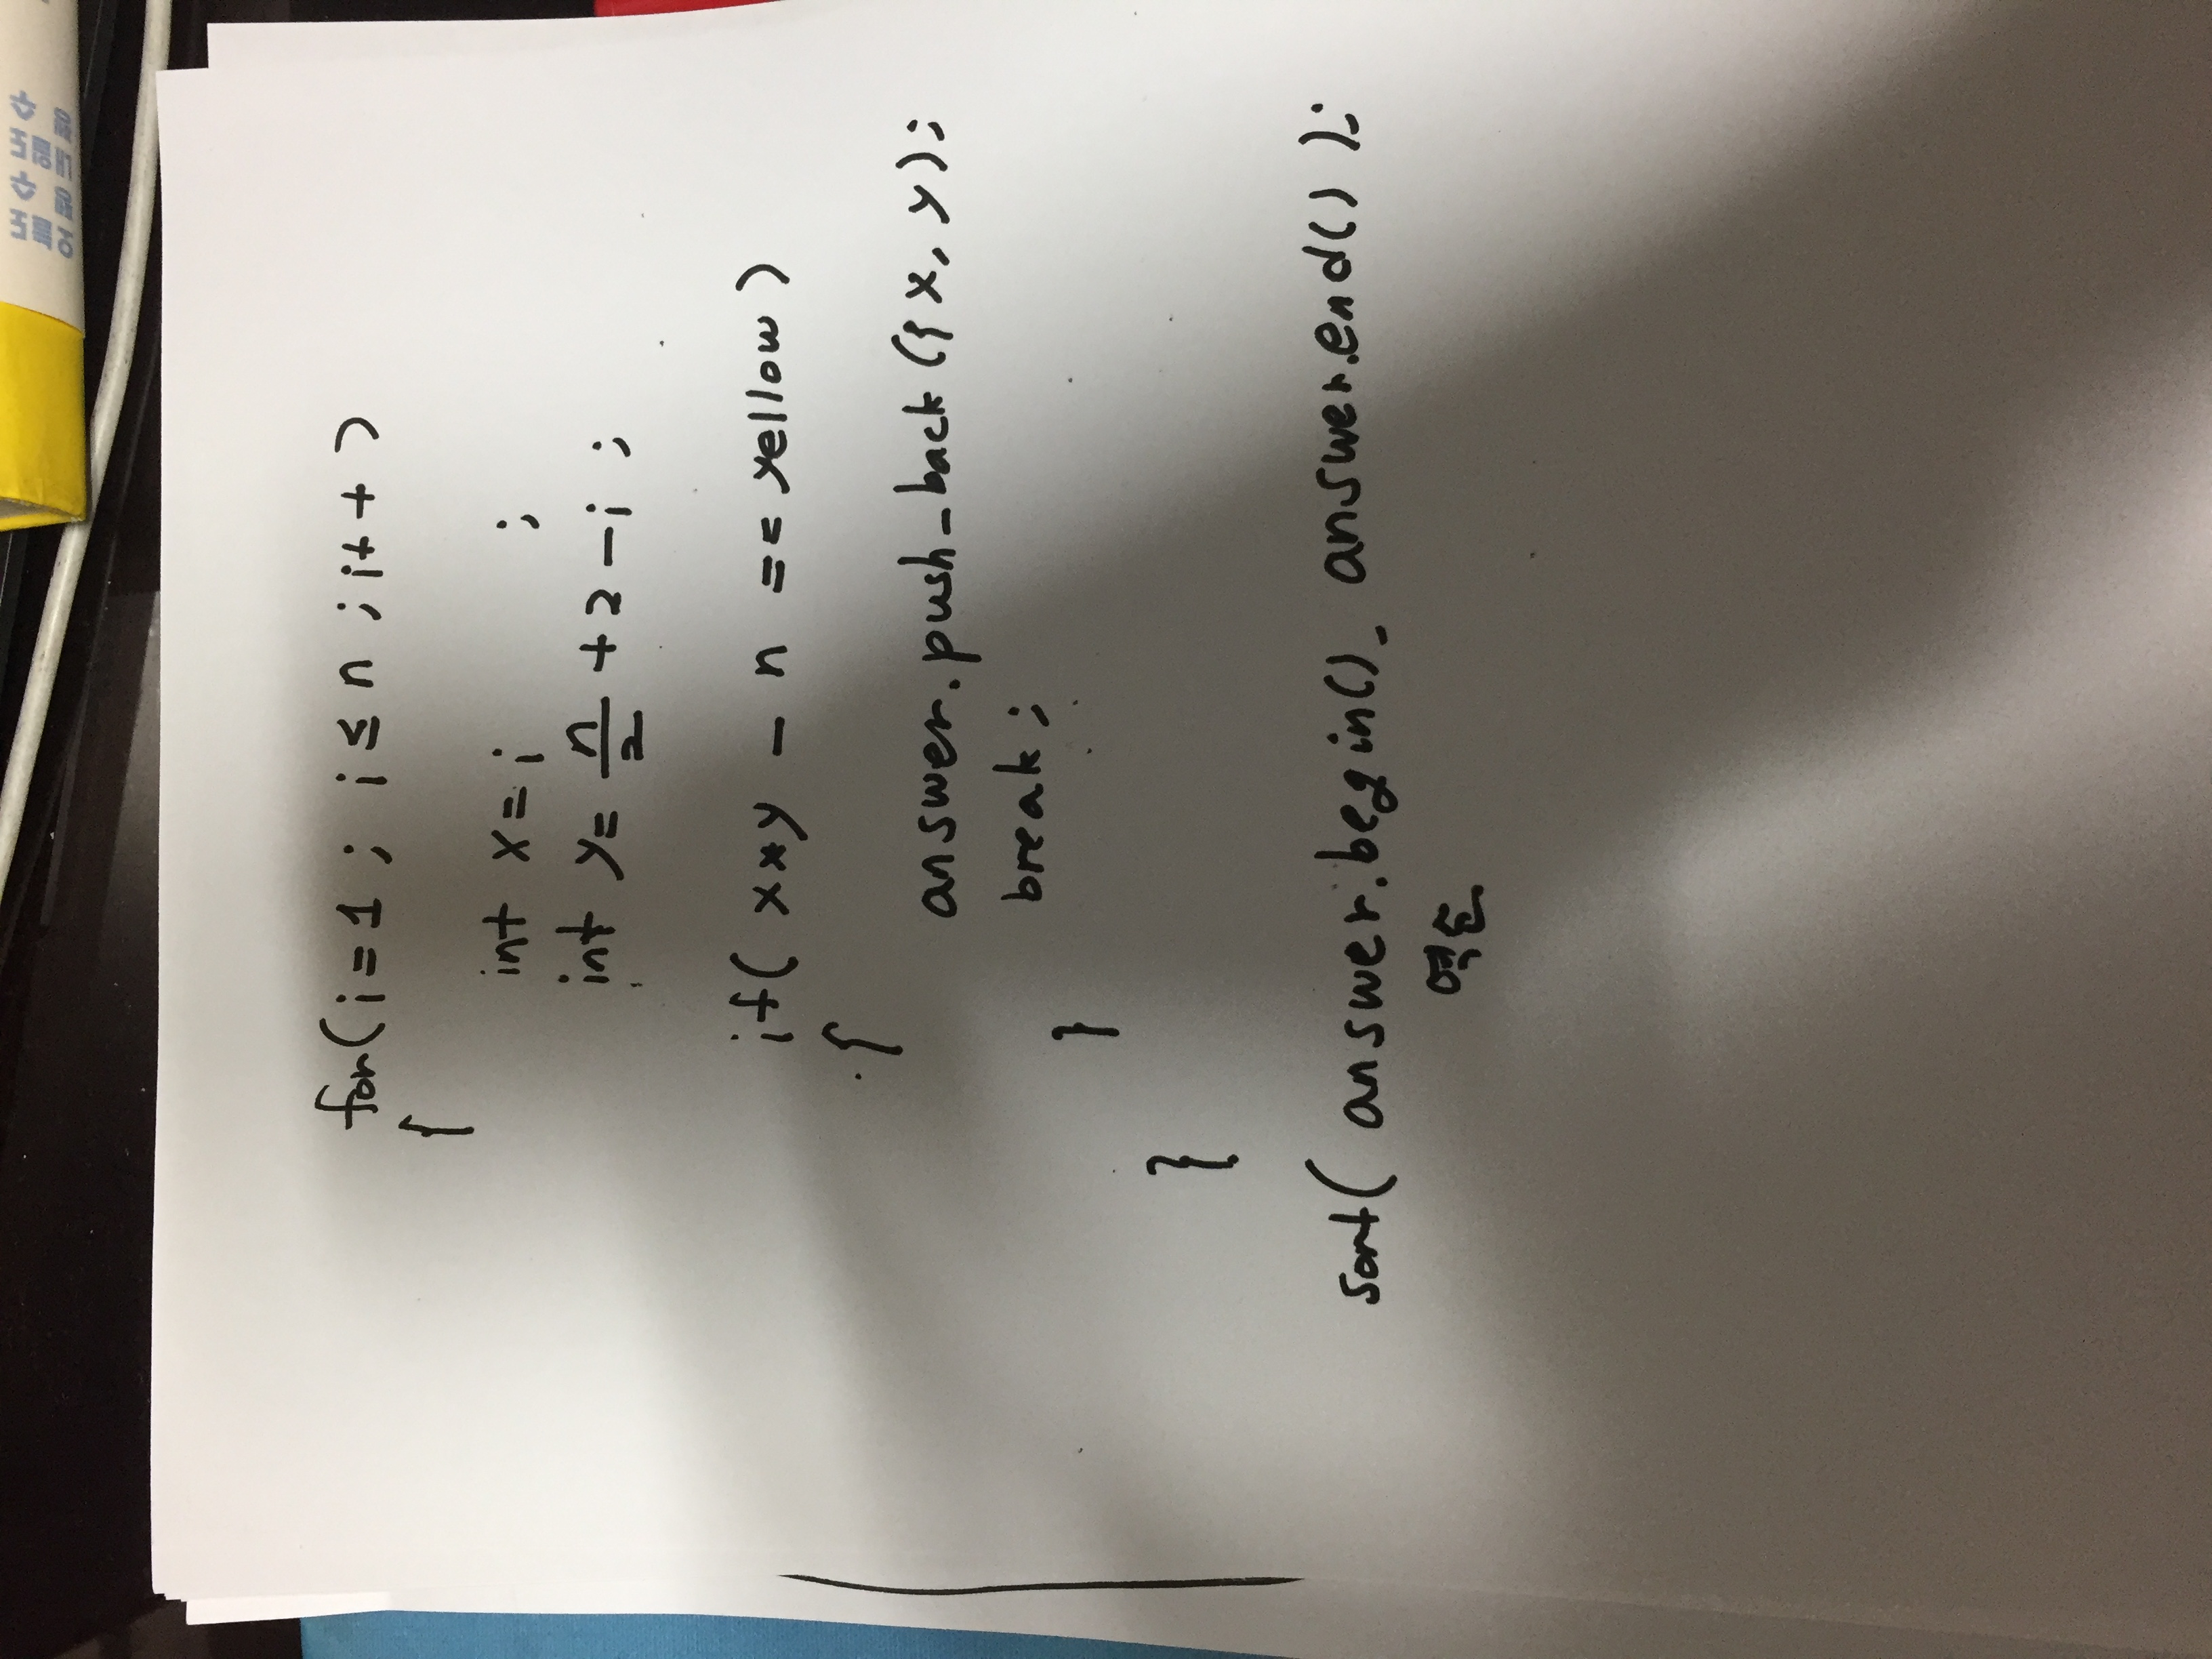 for(i=1 ; i≤n ; i++ )
{
int x=i ;
int y= n/2 +2-i ;
if( x*y - n == yellow )
{
answer.push_back({x, y);
break;
}
}
sort( answer.begin(), answer.end() );
역순